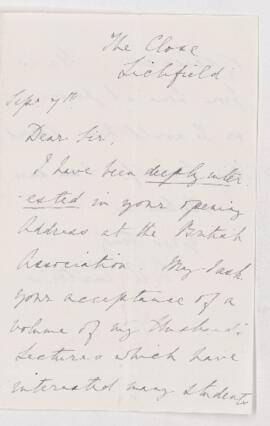 The Close
Lichfield
Sept 7th
Dear Sir,
I have been deeply inter
-ested in your opening
Address at the British
Association. May I ask
your acceptance of a
volume of my Husband's
Lectures which have
interested many students